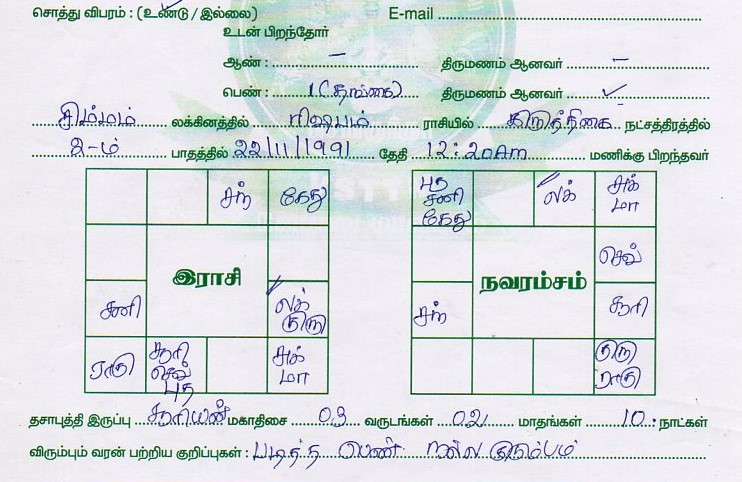 சொத்து விபரம் : (உண்டு / இல்லை) E-mail
உடன் பிறந்தோர்
ஆண் : – திருமணம் ஆனவர் –
பெண் : 1 (தங்கை) திருமணம் ஆனவர் ✓
சிம்மம் லக்கினத்தில் ரிஷபம் ராசியில் கிருத்திகை நட்சத்திரத்தில்
2-ம் பாதத்தில் 22/11/1991 தேதி 12:20Am மணிக்கு பிறந்தவர்
சந் கேது
இராசி
சனி லக் குரு
ராகு சூரி செவ் புத சுக் மா
புத சனி கேது லக் சுக் மா
செவ்
நவாம்சம்
சந் சூரி
குரு ராகு
தசாபுத்தி இருப்பு சூரியன் மகாதிசை 03 வருடங்கள் 02 மாதங்கள் 10 நாட்கள்
விரும்பும் வரன் பற்றிய குறிப்புகள் : படித்த பெண் நல்ல குடும்பம்